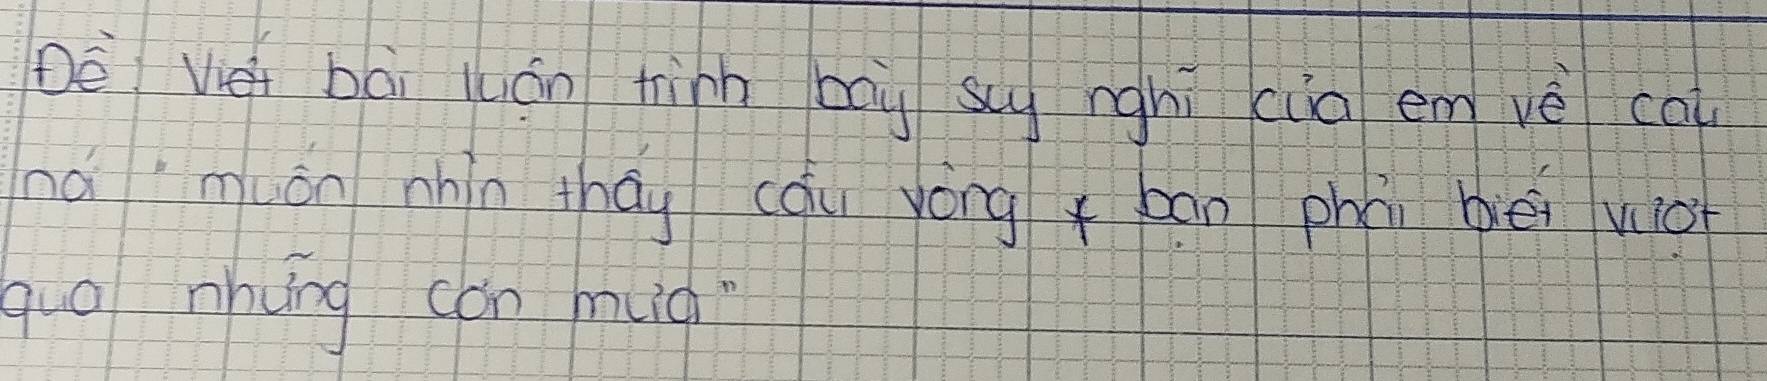 Đề Viết bài luận trình bày suy nghĩ của em về câu
nó "muốn nhìn thấy cầu vồng bạn phải biết vượt
qua những cơn mưa"